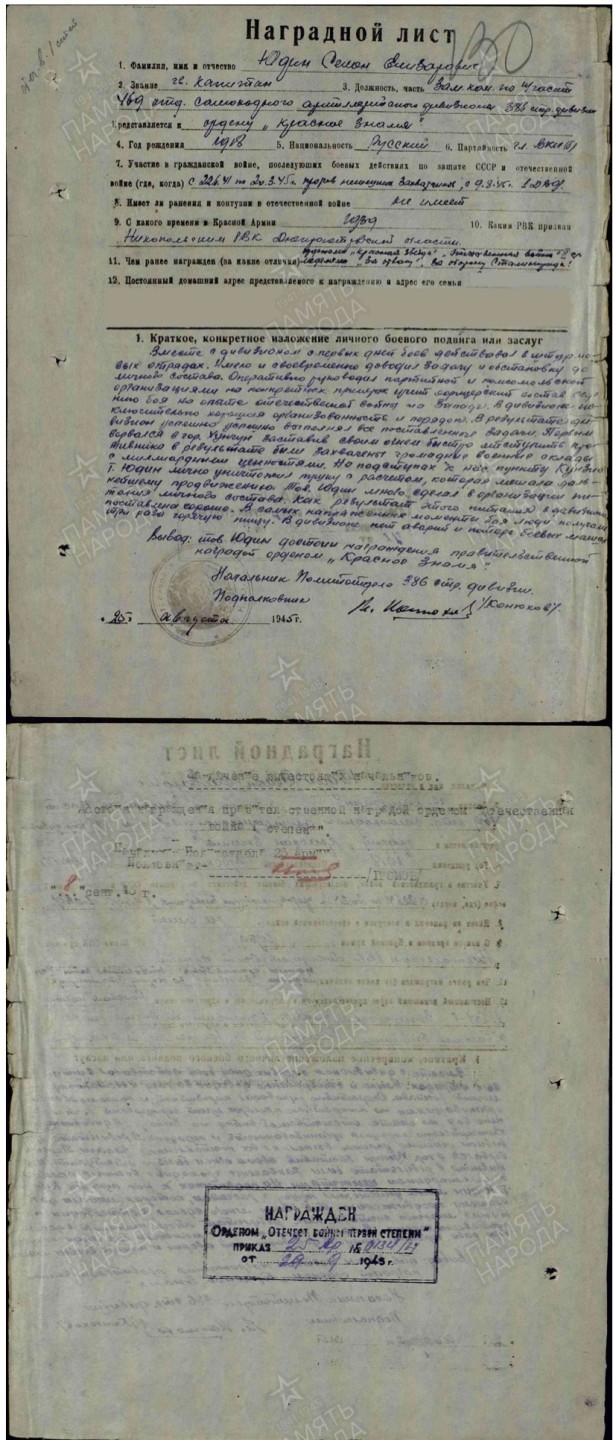 Наградной лист
1. Фамилия, имя и отчество Юдин Семен
2. Звание гв. капитан 3. Должность, часть Зам. ком. по п/части
469 отд. самоходного артиллерийского дивизиона 386 стр. дивизии
Представляется к ордену „Красное Знамя"
4. Год рождения 1918 5. Национальность Русский 6. Партийность чл. ВКП/б
7. Участие в гражданской войне, последующих боевых действиях по защите СССР и отечественной
войне (где, когда) С 22.6.41 по 20.3.45г. против немецких захватчиков, с 9.8.45г. 1 ДВФ
8. Имеет ли ранения и контузии в отечественной войне не имеет
9. С какого времени в Красной Армии 1939 10. Каким РВК призван
Никопольским РВК Днепропетровской области.
11. Чем ранее награжден (за какие отличия) орденами „Красная звезда", „Отечественная война II ст.
медалями „За отвагу", „За оборону Сталинграда".
12. Постоянный домашний адрес представляемого к награждению и адрес его семьи
1. Краткое, конкретное изложение личного боевого подвига или заслуг
Вместе с дивизионом с первых дней боев действовал в штурмо-
вых отрядах. Умело и своевременно доводил задачу и обстановку до
личного состава. Оперативно руководил партийной и комсомольской
организациями, на конкретных примерах учит офицерский состав
нию боя на опыте отечественной войны на Западе. В дивизионе ис-
ключительно хорошая организованность и порядок. В результате ди-
визион успешно выполнял все поставленные задачи. Первым
ворвался в гор. Хунчун заставив своим огнем быстро отступить про-
тивника в результате были захвачены громадные военные склады
с миллиардными ценностями. На подступах к нас. пункту
т. Юдин лично уничтожил пушку с расчетом, которая мешала даль-
нейшему продвижению. Тов. Юдин много сделал в организации пи-
тания личного состава. Как результат этого питание в дивизионе
поставлено хорошо. В самых напряженных моментах боя люди получали
три раза горячую пищу. В дивизионе нет аварий и потерь боевых машин.
Вывод: тов. Юдин достоин награждения правительственной
наградой орденом „Красное Знамя".
Начальник Политотдела 386 стр. дивизии
Подполковник /Конюхов/
„25" августа 1945г.
Достоин награждения правительственной наградой орденом "Отечественная
война I степени".
Начальник Политотдела 25 Армии
Полковник
"8" сент. 45 г.
НАГРАЖДЕН
Орденом „Отечест. войны первой степени"
приказ 25 Ар №
от 29 9 1945 г.
ПАМЯТЬ
НАРОДА